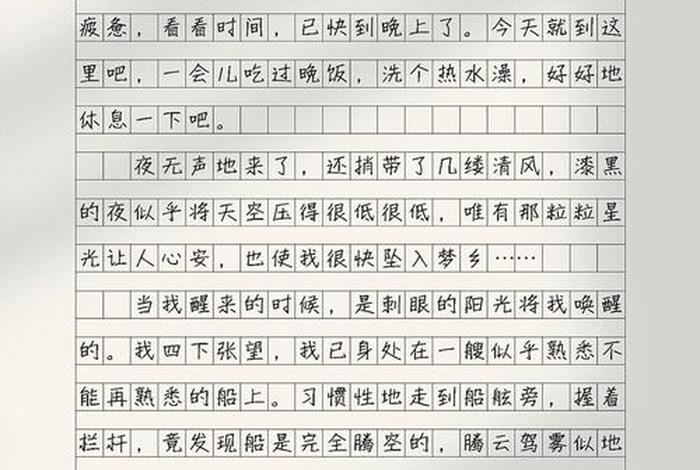 疲惫，看看时间，已快到晚上了。今天就到这
里吧，一会儿吃过晚饭，洗个热水澡，好好地
休息一下吧。
夜无声地来了，还捎带了几缕清风，漆黑
的夜似乎将天空压得很低很低，唯有那粒粒星
光让人心安，也使我很快坠入梦乡……
当我醒来的时候，是刺眼的阳光将我唤醒
的。我四下张望，我已身处在一艘似乎熟悉不
能再熟悉的船上。习惯性地走到船舷旁，握着
拦杆，竟发现船是完全腾空的，腾云驾雾似地